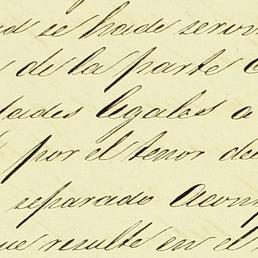 se ha de
de la parte
dades legales a
por el tenor de
separado Acom
que resulte en el